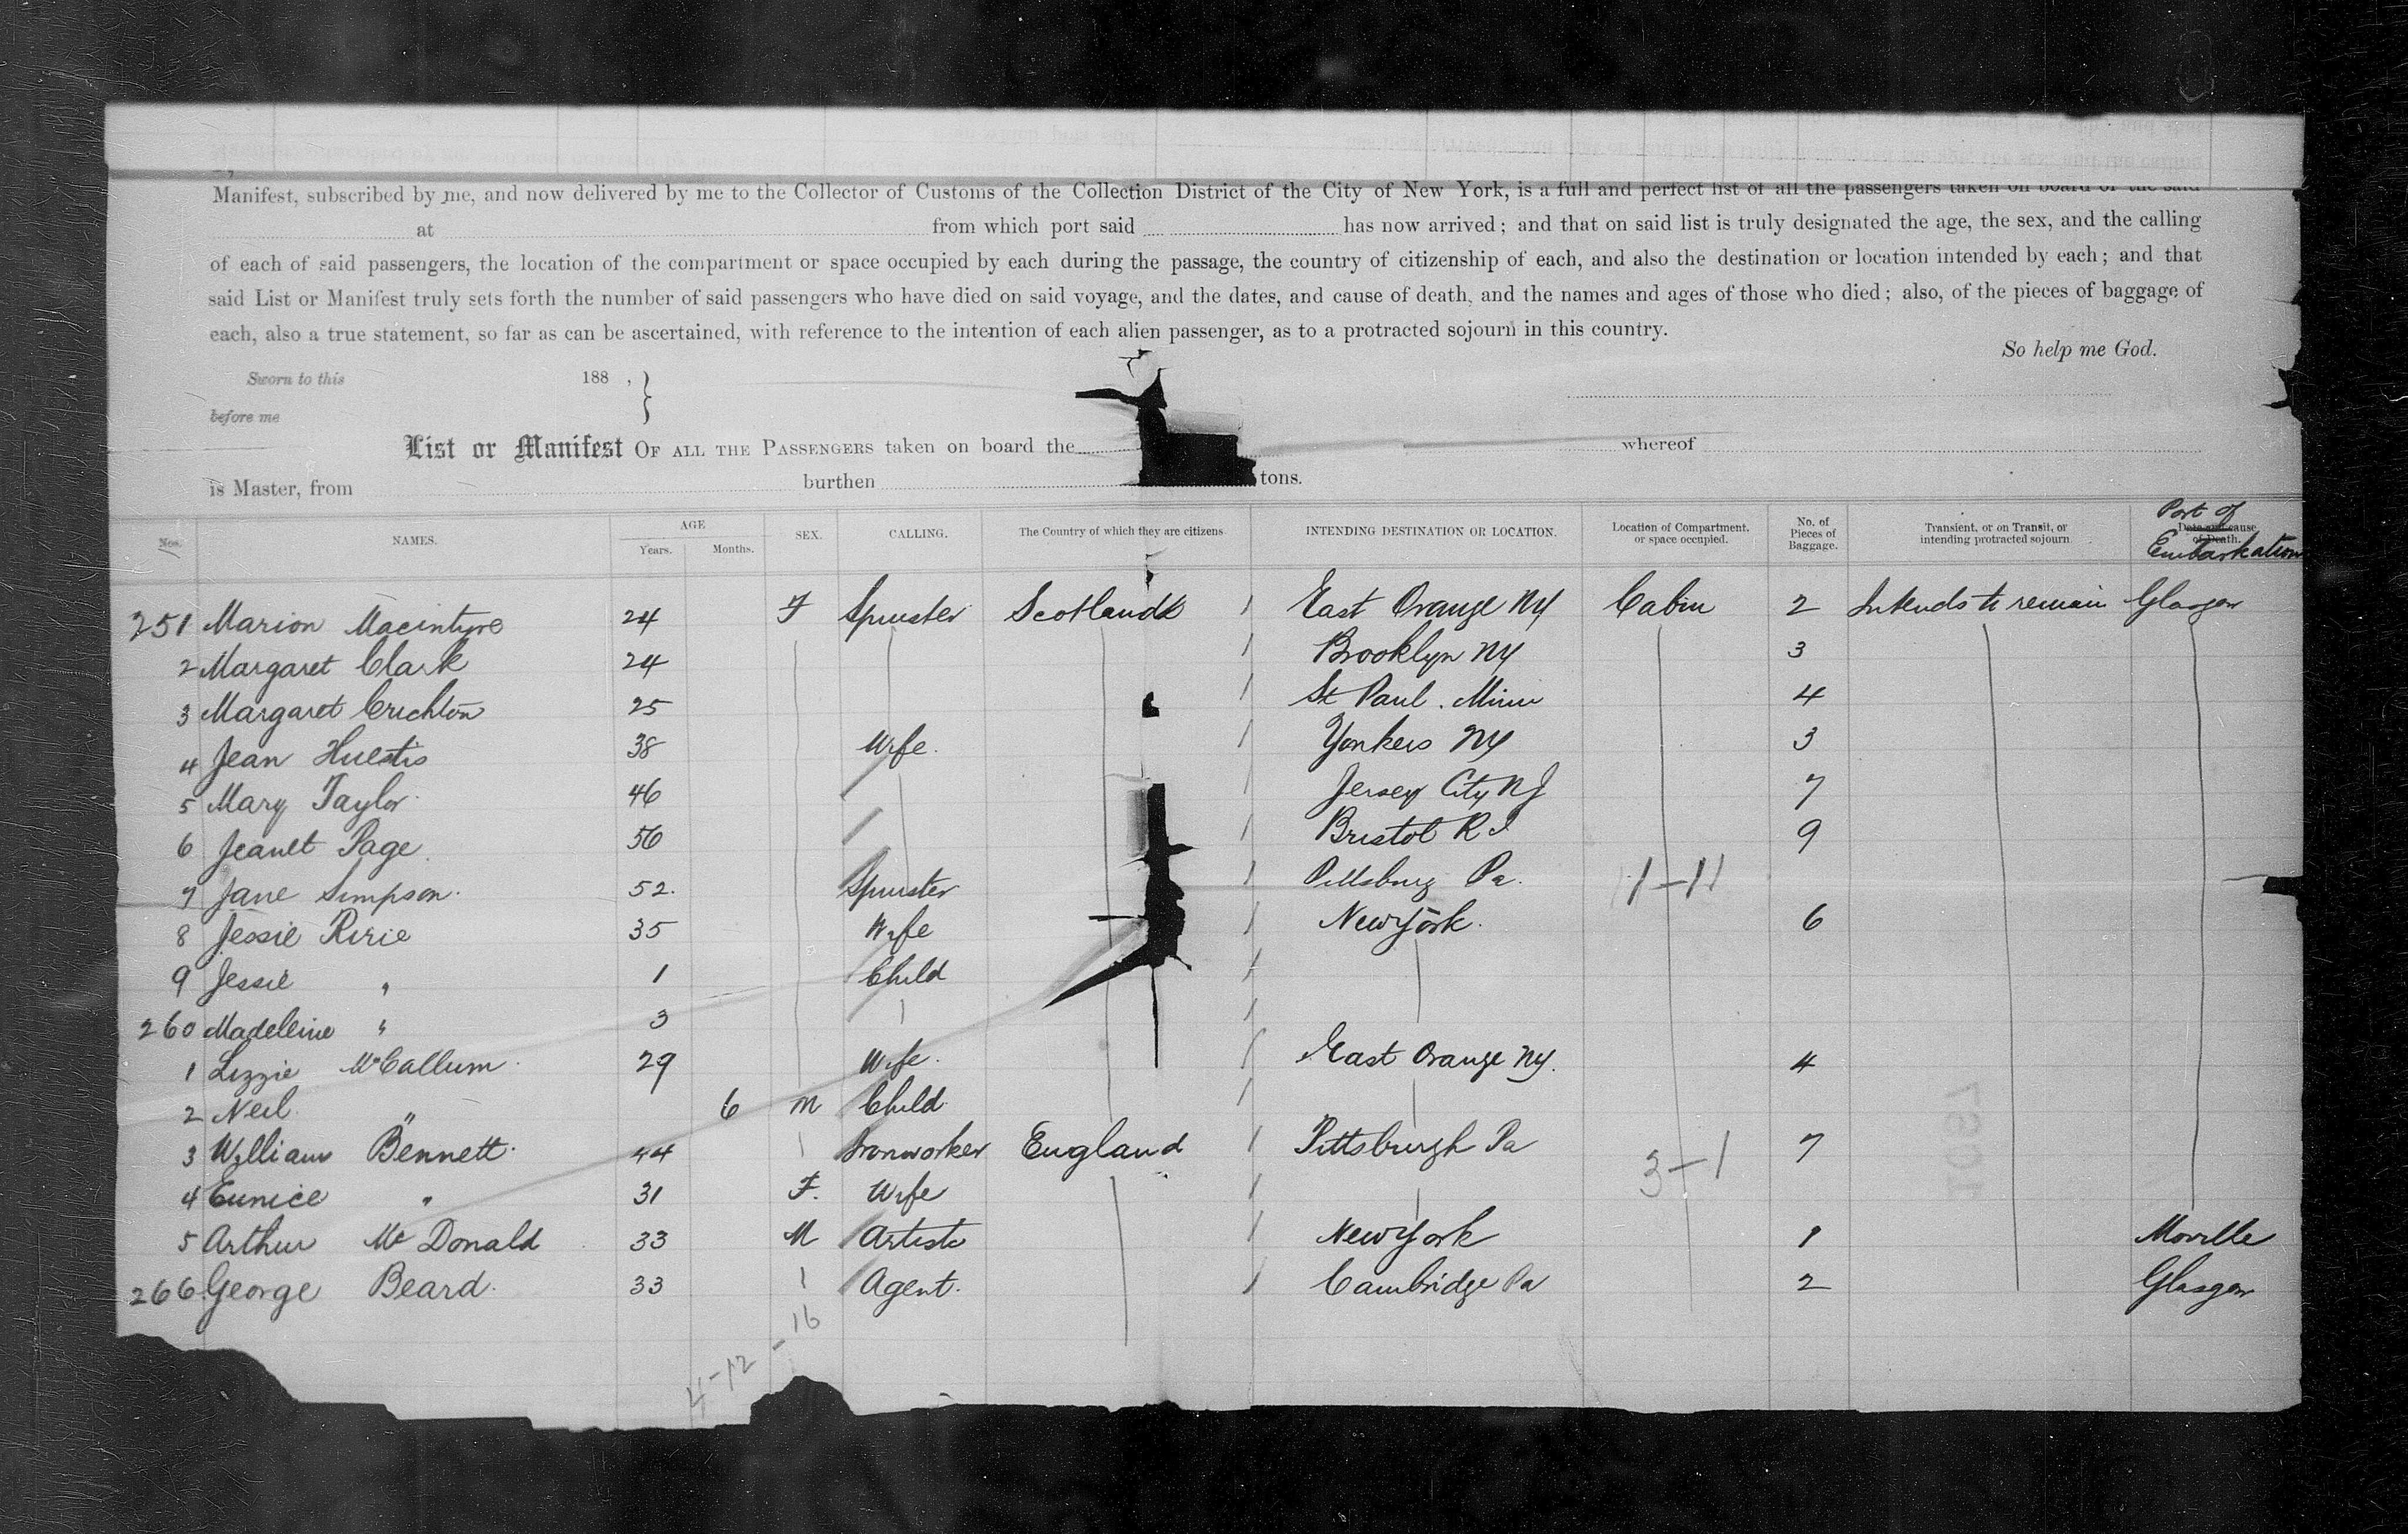 Manifest, subscribed by me, and now delivered by me to the Collector of Customs of the Collection District of the City of New York, is a full and perfect list of all the passengers taken on board of the said
at from which port said has now arrived; and that on said list is truly designated the age, the sex, and the calling
of each of said passengers, the location of the compartment or space occupied by each during the passage, the country of citizenship of each, and also the destination or location intended by each; and that
said List or Manifest truly sets forth the number of said passengers who have died on said voyage, and the dates, and cause of death, and the names and ages of those who died; also, of the pieces of baggage of
each, also a true statement, so far as can be ascertained, with reference to the intention of each alien passenger, as to a protracted sojourn in this country.
So help me God.
Sworn to this 188 ,
before me
List or Manifest OF ALL THE PASSENGERS taken on board the whereof
is Master, from burthen tons.
Nos. NAMES. AGE Years. Months. SEX. CALLING. The Country of which they are citizens INTENDING DESTINATION OR LOCATION. Location of Compartment, or space occupied. No. of Pieces of Baggage. Transient, or on Transit, or intending protracted sojourn Date and cause of Death. Port of Embarkation
251 Marion Macintyre 24 F Spinster Scotland 1 East Orange NY Cabin 2 Intends to remain Glasgow
2 Margaret Clark 24 1 Brooklyn NY 3
3 Margaret Crichton 25 1 St Paul. Minn 4
4 Jean Huestis 38 Wife. 1 Yonkers NY 3
5 Mary Taylor 46 1 Jersey City NJ 7
6 Jeanet Page 56 1 Bristol R I 9
7 Jane Simpson. 52. Spinster 1 Pittsburg Pa. 11-11
8 Jessie Ririe 35 Wife 1 New York. 6
9 Jessie " 1 Child 1
260 Madeleine " 3 1
1 Lizzie McCallum. 29 Wife. 1 East Orange NY. 4
2 Neil " 6 M Child 1
3 William Bennett. 44 Ironworker England 1 Pittsburgh Pa 3-1 7
4 Eunice " 31 F. Wife 1
5 Arthur Mc Donald 33 M Artist 1 New York 1 Moville
266 George Beard. 33 Agent. 1 Cambridge Pa 2 Glasgow
4-12-16